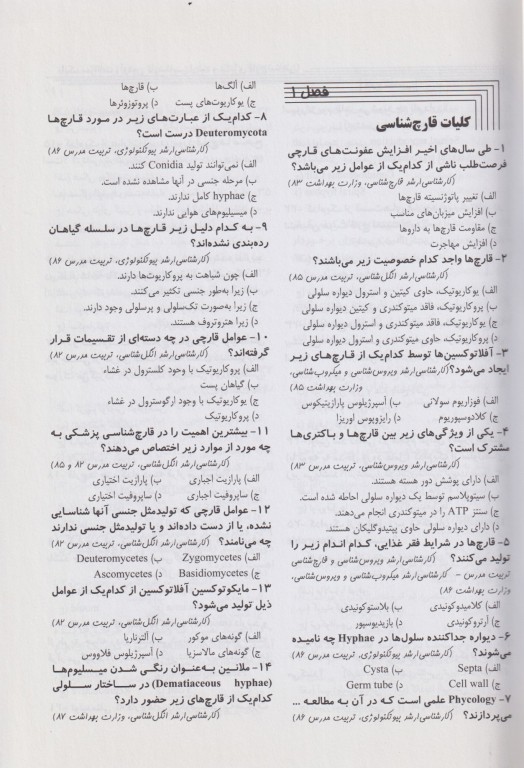 فصل ۱
کلیات قارچ‌شناسی
۱- طی سال‌های اخیر افزایش عفونت‌های قارچی
فرصت‌طلب ناشی از کدام‌یک از عوامل زیر می‌باشد؟
(کارشناسی‌ارشد قارچ‌شناسی، وزارت بهداشت ۸۳)
الف) تغییر پاتوژنسیته قارچ‌ها
ب) افزایش میزبان‌های مناسب
ج) مقاومت قارچ‌ها به داروها
د) افزایش مهاجرت
۲- قارچ‌ها واجد کدام خصوصیت زیر می‌باشند؟
(کارشناسی‌ارشد انگل‌شناسی، تربیت مدرس ۸۵)
الف) یوکاریوتیک، حاوی کیتین و استرول دیواره سلولی
ب) پروکاریوتیک، فاقد میتوکندری و کیتین دیواره سلولی
ج) یوکاریوتیک، فاقد میتوکندری و استرول دیواره سلولی
د) پروکاریوتیک، حاوی میتوکندری و استرول دیواره سلولی
۳- آفلاتوکسین‌ها توسط کدام‌یک از قارچ‌های زیر
ایجاد می‌شود؟ (کارشناسی‌ارشد ویروس‌شناسی و میکروب‌شناسی،
وزارت بهداشت ۸۵)
الف) فوزاریوم سولانی ب) آسپرژیلوس پارازیتیکوس
ج) کلادوسپوریوم د) رایزوپوس اوریزا
۴- یکی از ویژگی‌های زیر بین قارچ‌ها و باکتری‌ها
مشترک است؟
(کارشناسی‌ارشد ویروس‌شناسی، تربیت مدرس ۸۳)
الف) دارای پوشش دور هسته هستند.
ب) سیتوپلاسم توسط یک دیواره سلولی احاطه شده است.
ج) سنتز ATP را در میتوکندری انجام می‌دهند.
د) دارای دیواره سلولی حاوی پپتیدوگلیکان هستند.
۵- قارچ‌ها در شرایط فقر غذایی، کدام اندام زیر را
تولید می‌کنند؟ (کارشناسی‌ارشد ویروس‌شناسی و قارچ‌شناسی
تربیت مدرس - کارشناسی‌ارشد میکروب‌شناسی و ویروس‌شناسی،
وزارت بهداشت ۸۶)
الف) کلامیدوکونیدی ب) بلاستوکونیدی
ج) آرتروکونیدی د) بازیدیوسپور
۶- دیواره جداکننده سلول‌ها در Hyphae چه نامیده
می‌شوند؟ (کارشناسی‌ارشد بیوتکنولوژی، تربیت مدرس ۸۶)
الف) Septa ب) Cysta
ج) Cell wall د) Germ tube
۷- Phycology علمی است که در آن به مطالعه ...
می‌پردازند؟ (کارشناسی‌ارشد بیوتکنولوژی، تربیت مدرس ۸۶)
الف) آلگ‌ها ب) قارچ‌ها
ج) یوکاریوت‌های پست د) پروتوزوئرها
۸- کدام‌یک از عبارت‌های زیر در مورد قارچ‌ها
Deuteromycota درست است؟
(کارشناسی‌ارشد بیوتکنولوژی، تربیت مدرس ۸۶)
الف) نمی‌توانند تولید Conidia کنند.
ب) مرحله جنسی در آنها مشاهده نشده است.
ج) hyphae کامل ندارند.
د) میسیلیوم‌های هوایی ندارند.
۹- به کدام دلیل زیر قارچ‌ها در سلسله گیاهان
رده‌بندی نشده‌اند؟
(کارشناسی‌ارشد بیوتکنولوژی، تربیت مدرس ۸۶)
الف) چون شباهت به پروکاریوت‌ها دارند.
ب) زیرا به‌طور جنسی تکثیر می‌کنند.
ج) زیرا به‌صورت تک‌سلولی و پرسلولی وجود دارند.
د) زیرا هتروتروف هستند.
۱۰- عوامل قارچی در چه دسته‌ای از تقسیمات قرار
گرفته‌اند؟ (کارشناسی‌ارشد انگل‌شناسی، تربیت مدرس ۸۲)
الف) پروکاریوتیک با وجود کلسترول در غشاء
ب) گیاهان پست
ج) یوکاریوتیک با وجود ارگوسترول در غشاء
د) پروکاریوتیک
۱۱- بیشترین اهمیت را در قارچ‌شناسی پزشکی به
چه مورد از موارد زیر اختصاص می‌دهند؟
(کارشناسی‌ارشد انگل‌شناسی، تربیت مدرس ۸۲ و ۸۵)
الف) پارازیت اجباری ب) پارازیت اختیاری
ج) ساپروفیت اجباری د) ساپروفیت اختیاری
۱۲- عوامل قارچی که تولیدمثل جنسی آنها شناسایی
نشده، یا از دست داده‌اند و یا تولیدمثل جنسی ندارند
چه می‌نامند؟ (کارشناسی‌ارشد انگل‌شناسی، تربیت مدرس ۸۲)
الف) Zygomycetes ب) Deuteromycetes
ج) Basidiomycetes د) Ascomycetes
۱۳- مایکوتوکسین آفلاتوکسین از کدام‌یک از عوامل
ذیل تولید می‌شود؟
(کارشناسی‌ارشد انگل‌شناسی، تربیت مدرس ۸۲)
الف) گونه‌های موکور ب) آلترناریا
ج) گونه‌های مالاسزیا د) آسپرژیلوس فلاووس
۱۴- ملانین به‌عنوان رنگی شدن میسلیوم‌ها
(Dematiaceous hyphae) در ساختار سلولی
کدام‌یک از قارچ‌های زیر حضور دارد؟
(کارشناسی‌ارشد انگل‌شناسی، وزارت بهداشت ۸۷)